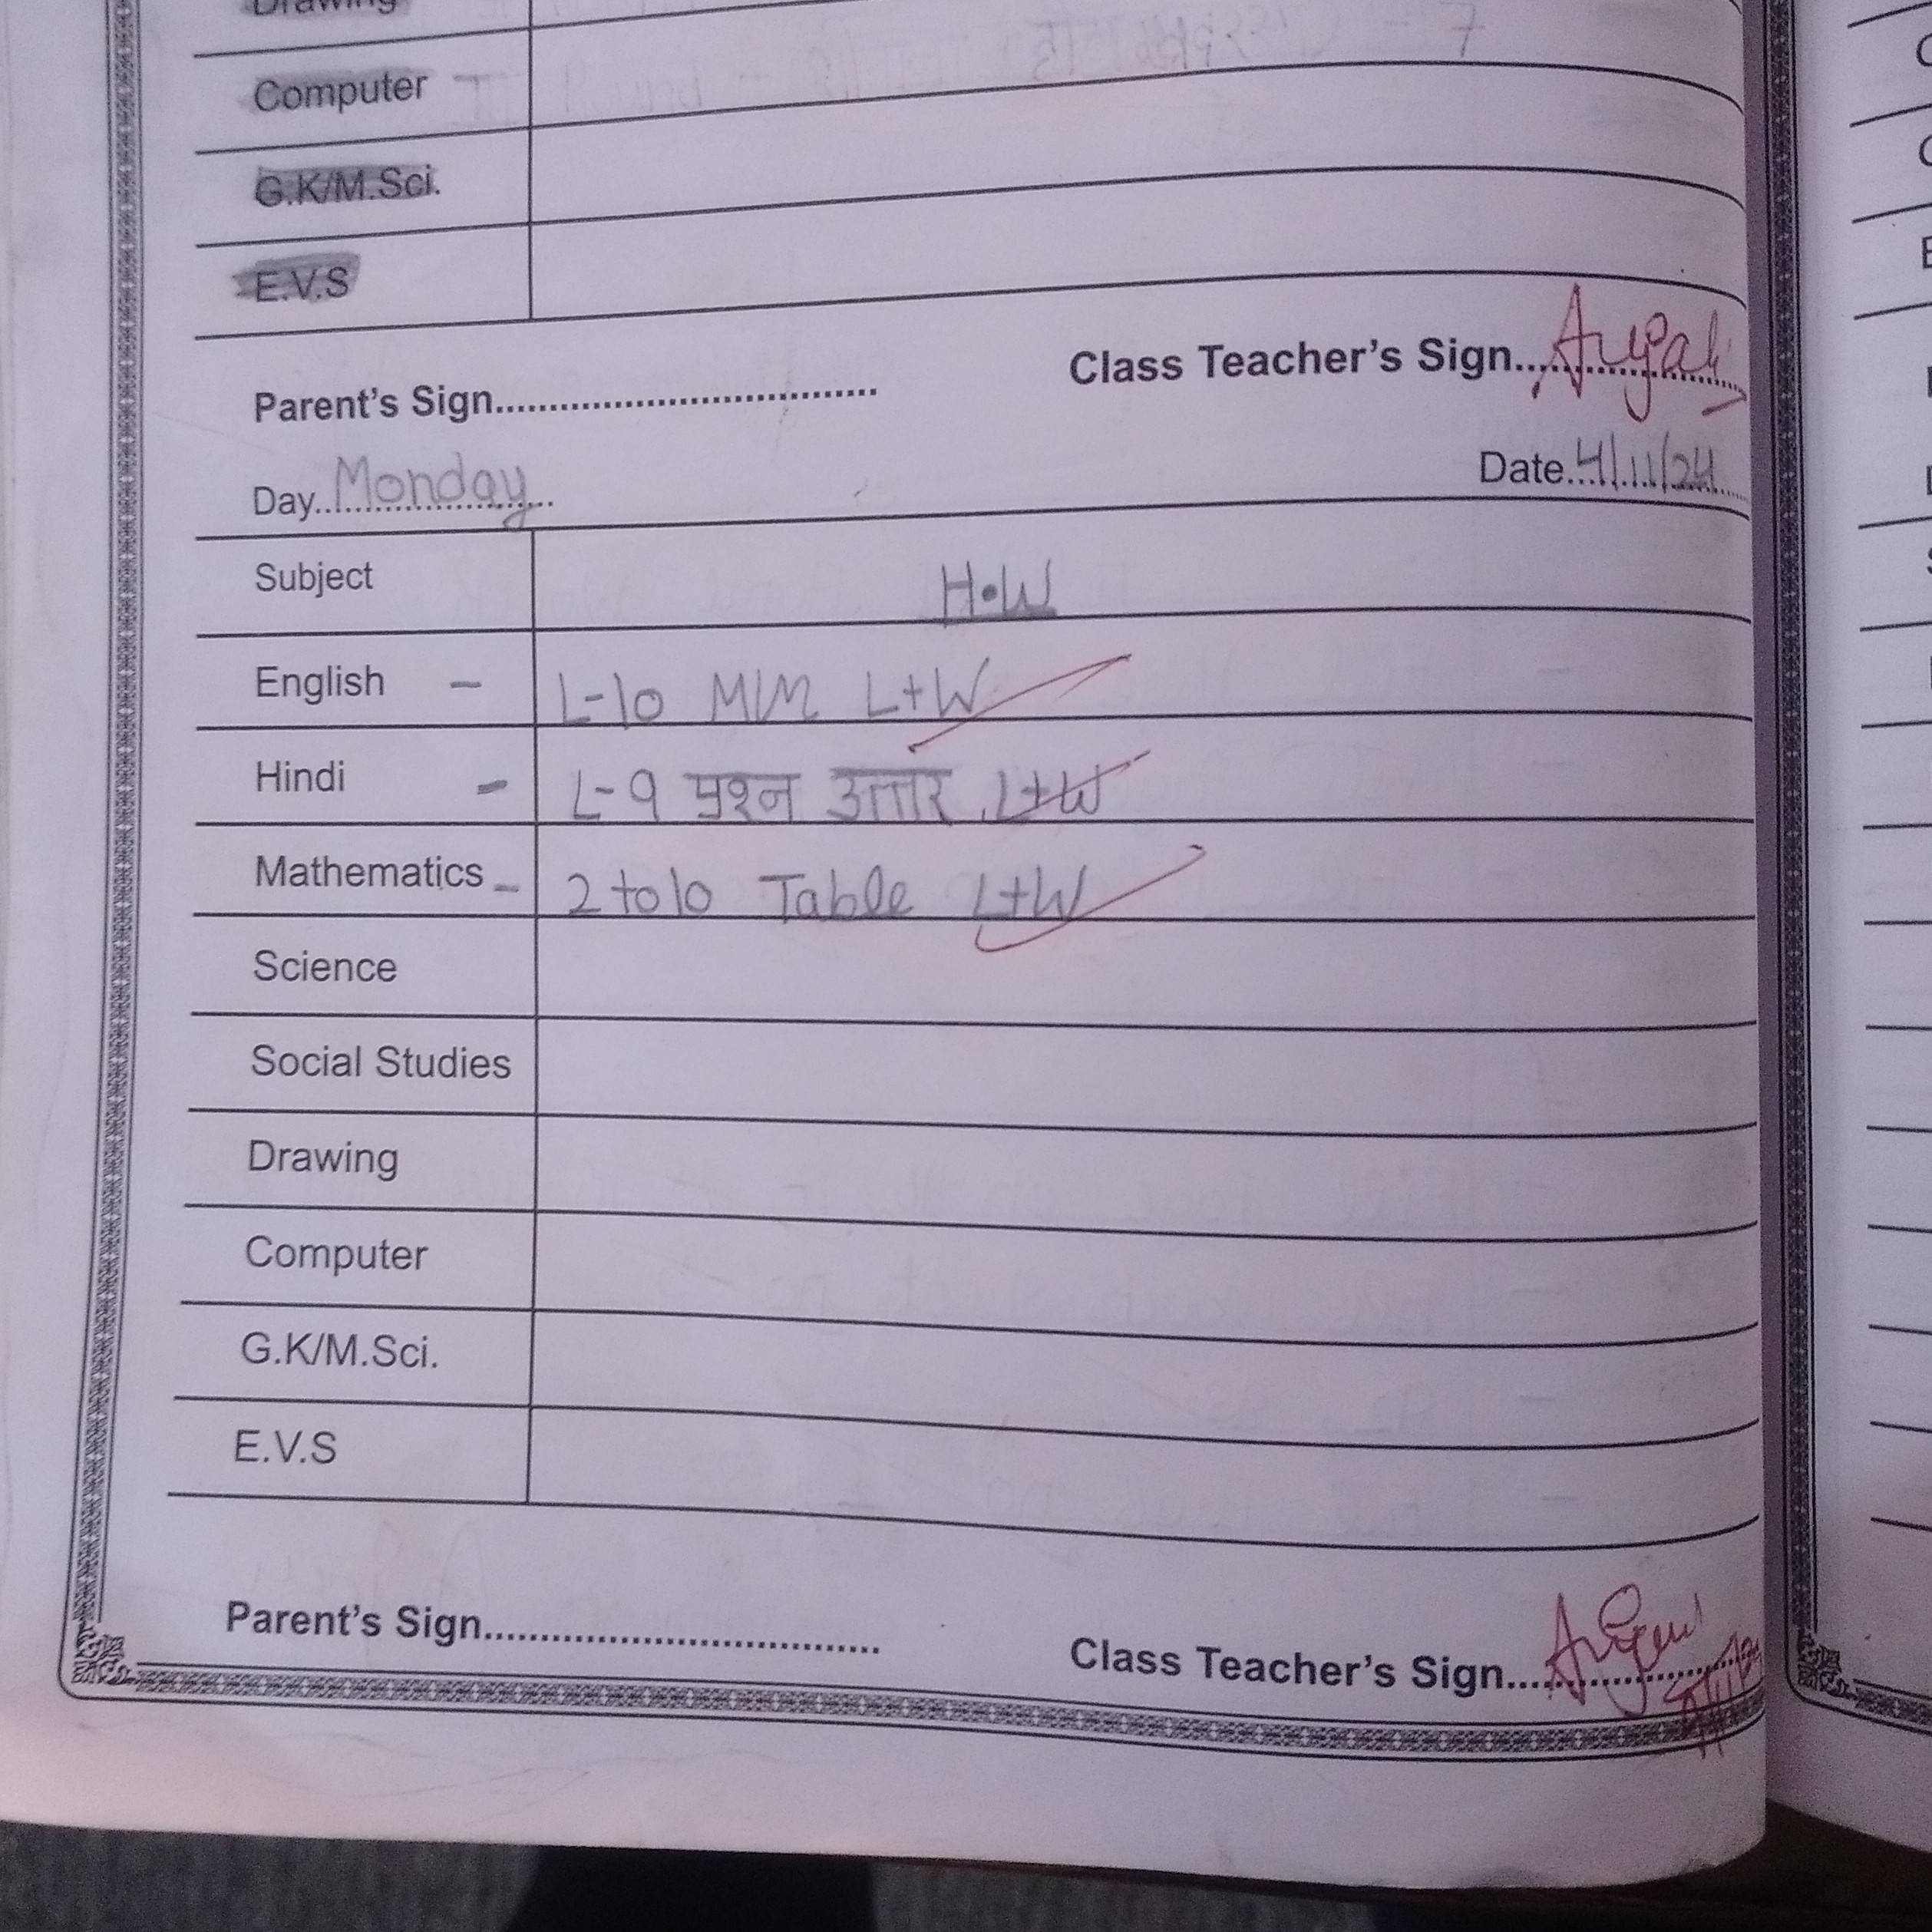 Drawing
Computer
G.K/M.Sci.
E.V.S
Parent's Sign.................................. Class Teacher's Sign...
Day..Monday... Date...4/11/24
Subject H.W
English - L-10 M/M L+W
Hindi - L-9 प्रश्न उत्तार L+W
Mathematics - 2 to 10 Table L+W
Science
Social Studies
Drawing
Computer
G.K/M.Sci.
E.V.S
Parent's Sign.................................. Class Teacher's Sign...